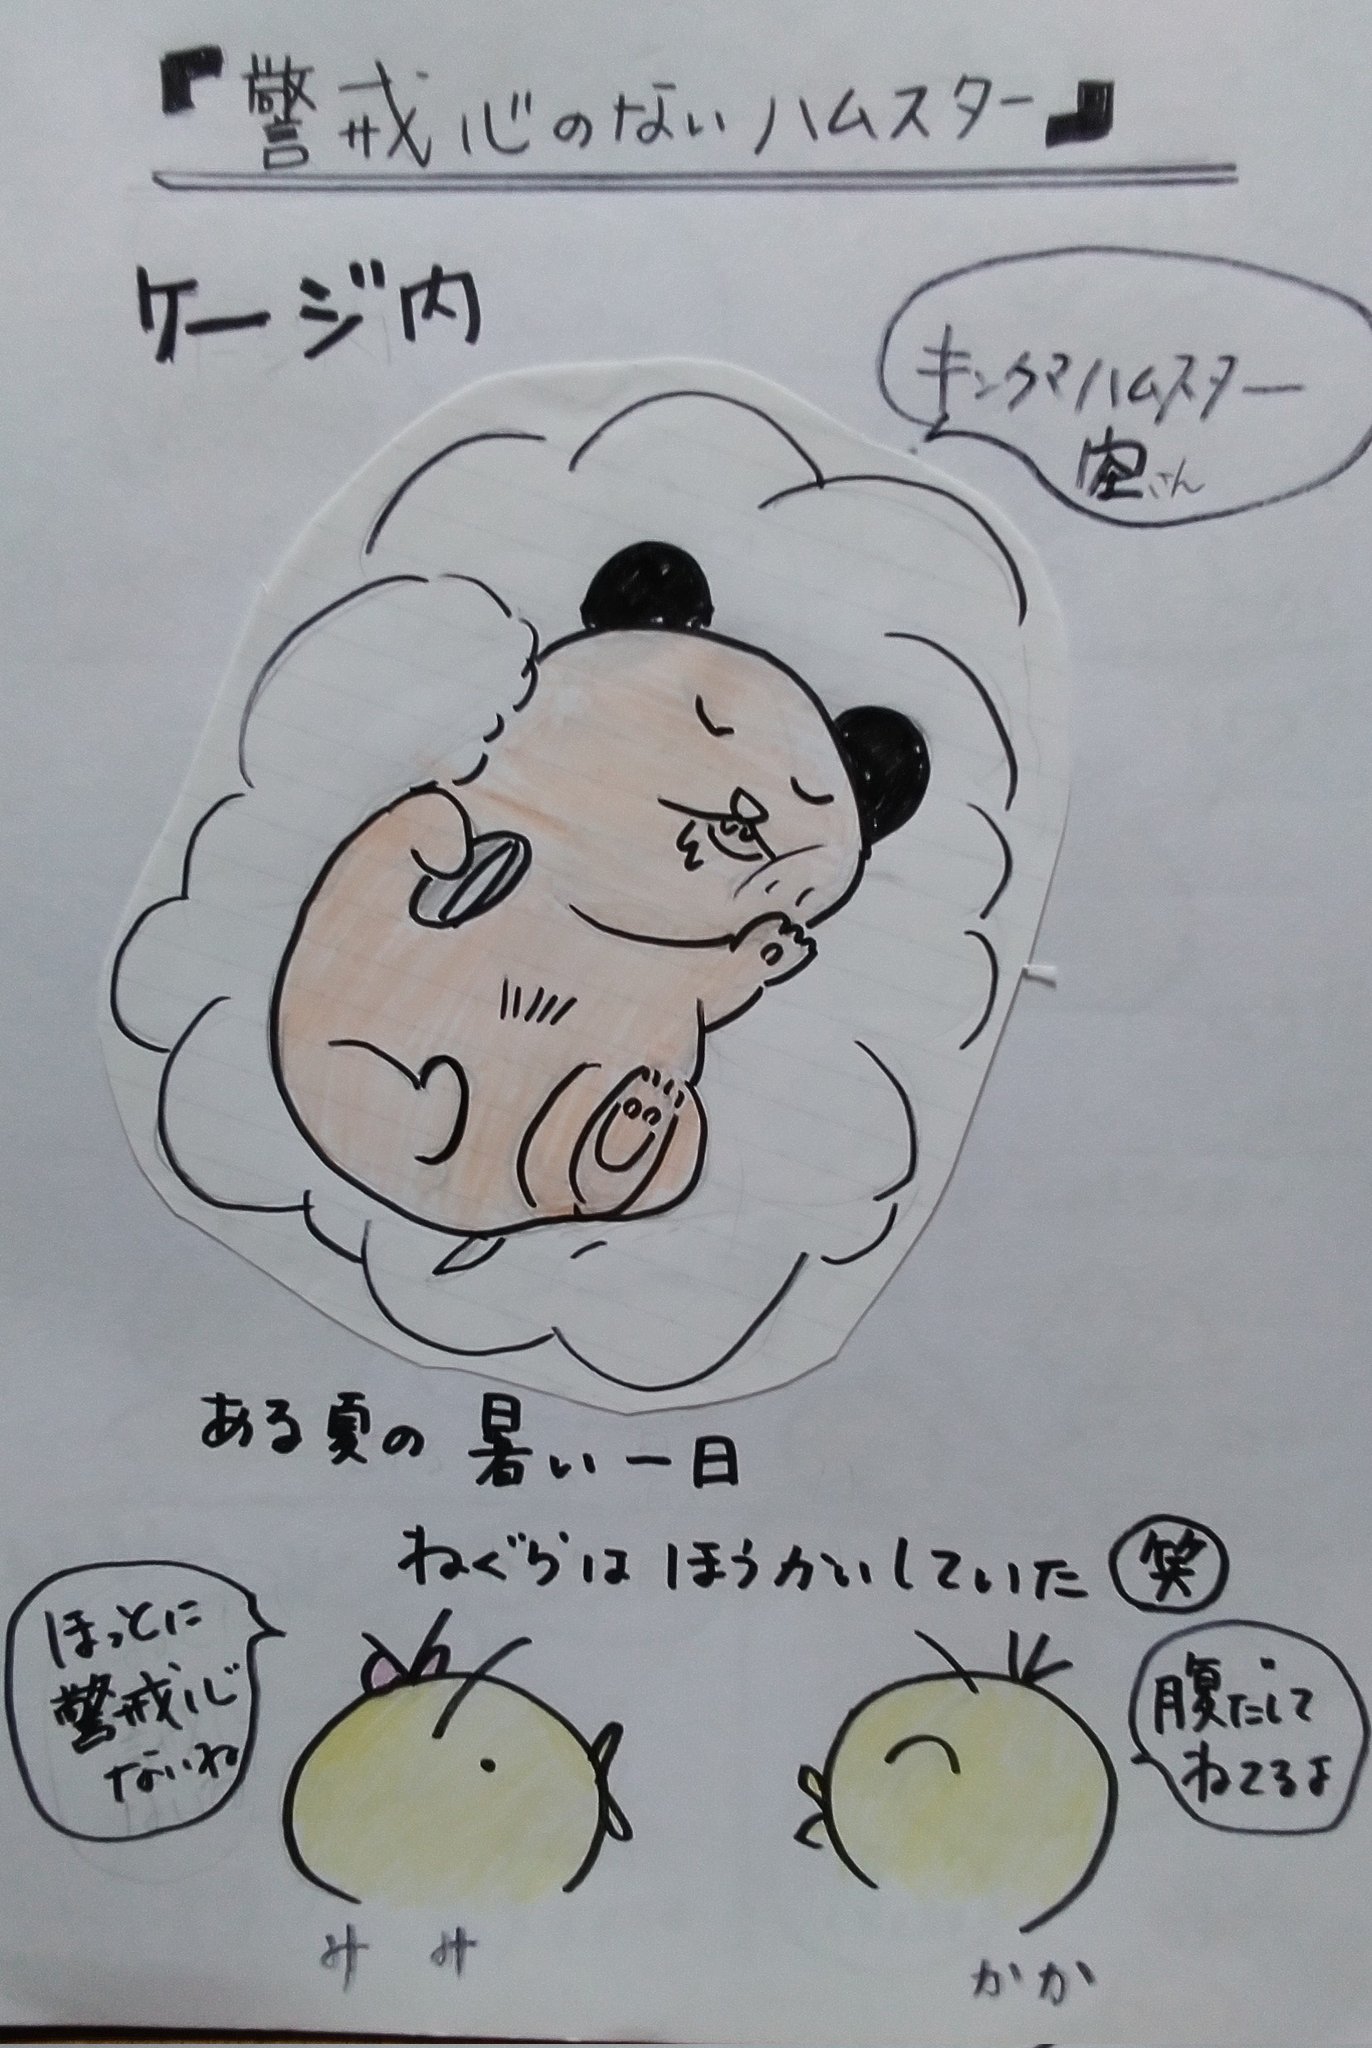 『警戒心のないハムスター』
ケージ内
キンクマハムスター
空さん
ある夏の暑い一日
ねぐらはほうかいしていた 笑
ほっとに
警戒心
ないね
腹だして
ねてるよ
みみ
かか